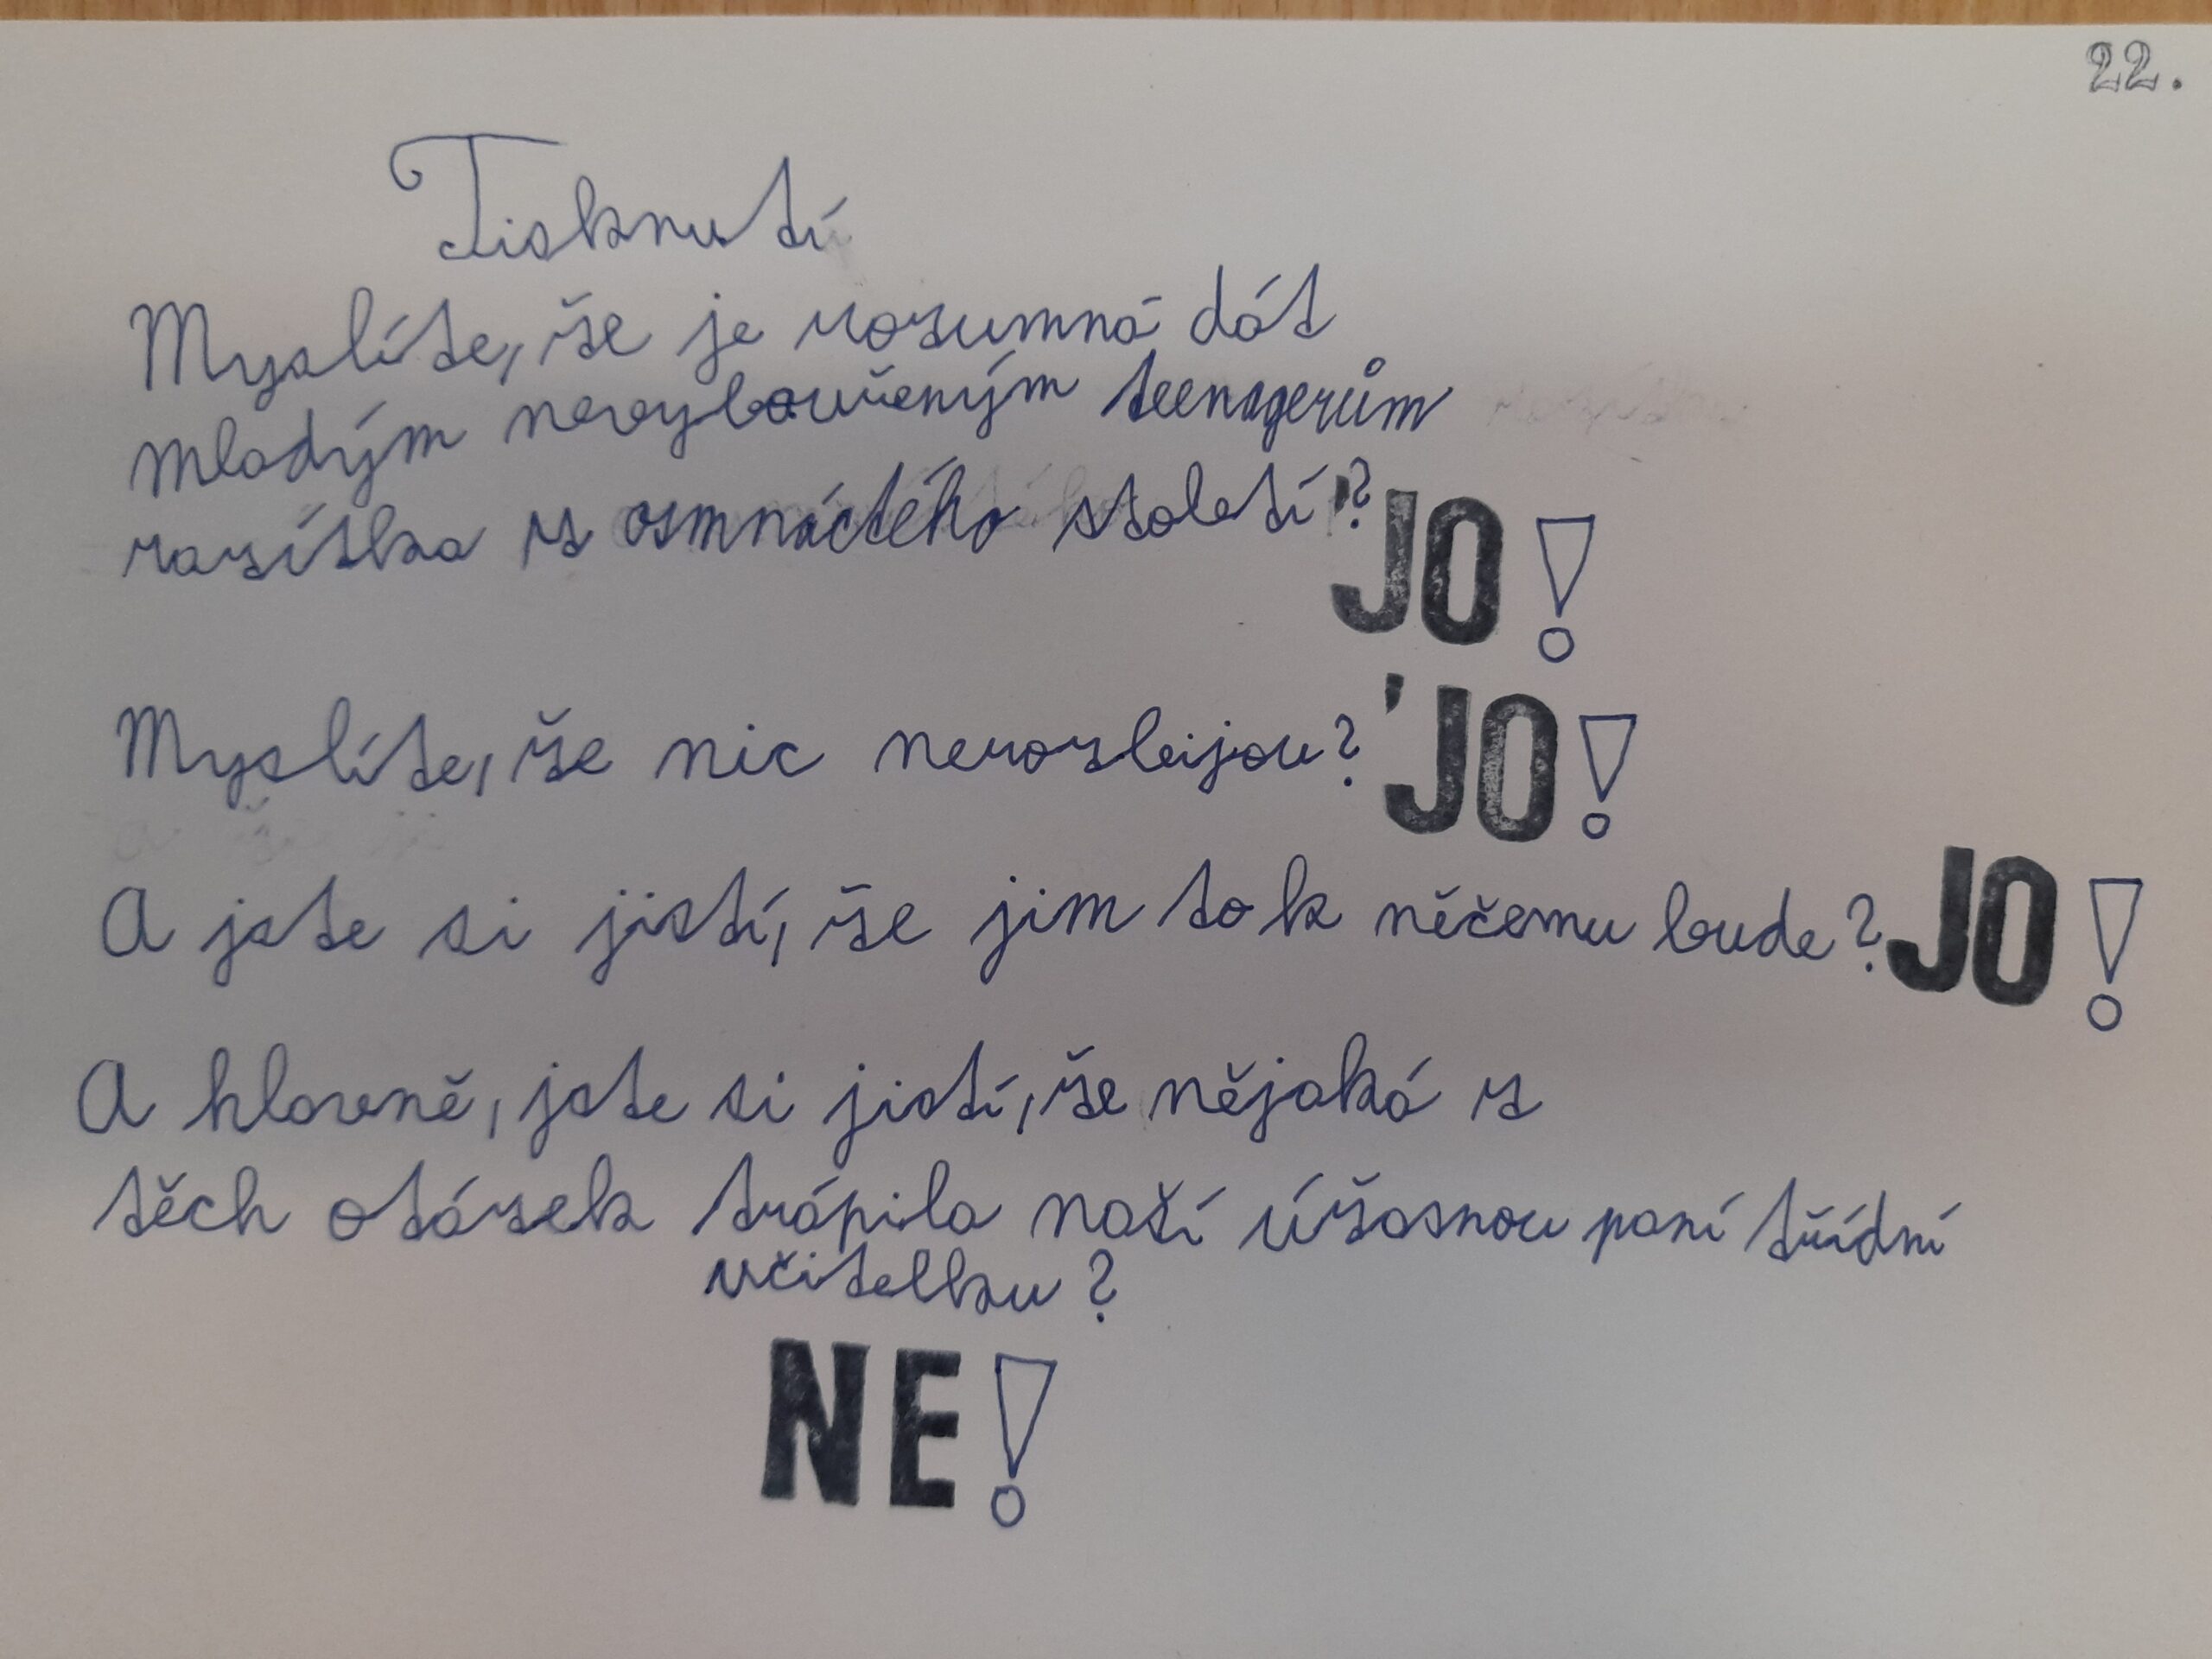 22.
Tisknutí
Myslíte, že je rozumná dát
mladým nevybouřeným teenagerům
razítka z osmnáctého století? JO!
Myslíte, že nic nerozleijou? JO!
A jste si jistí, že jim to k něčemu bude? JO!
A hlavně, jste si jistí, že nějaká z
těch otázek trápila naší úžasnou paní třídní
učitelku?
NE!